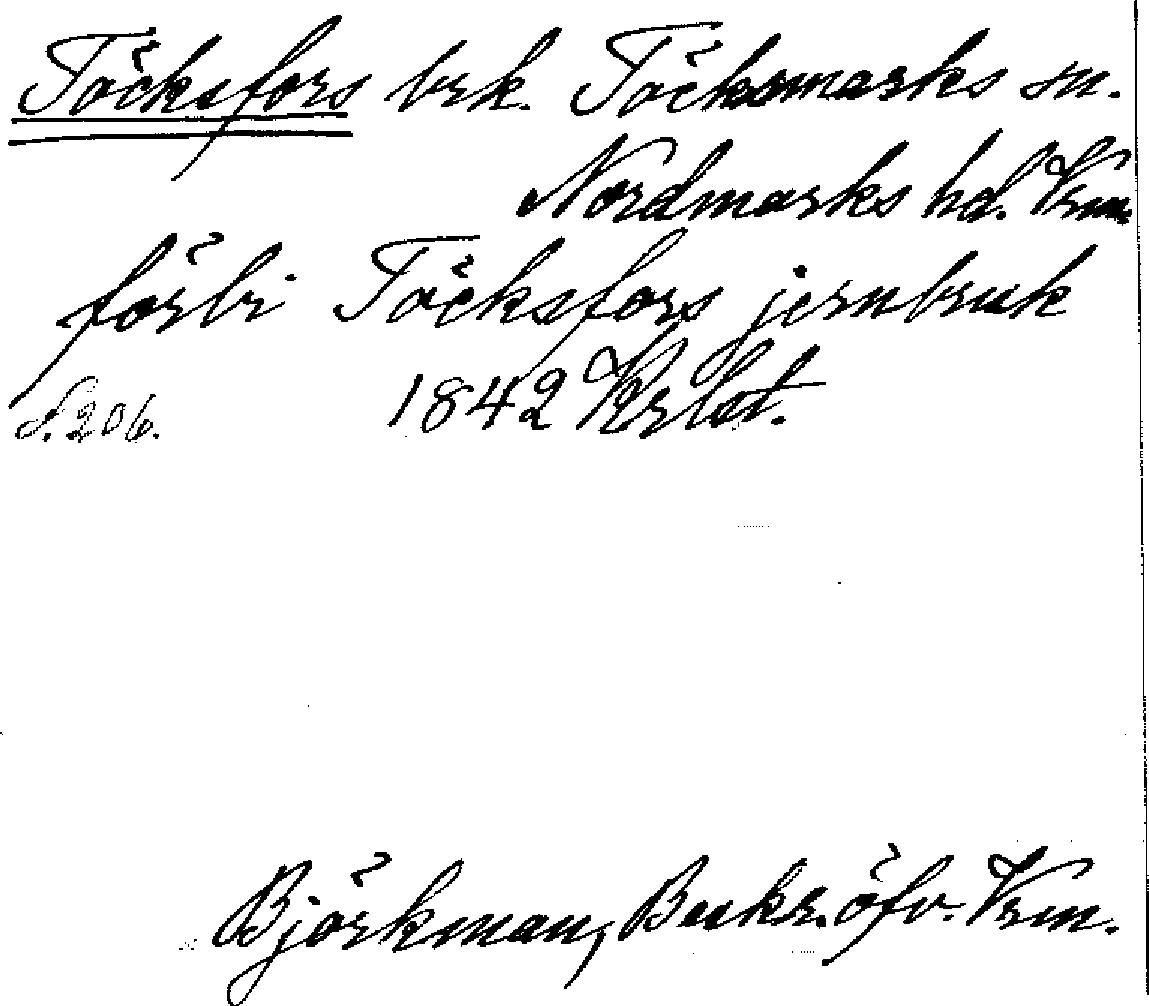 Töcksfors brk. Töcksmarks sn.
Nordmarks hd. Vrm.
förbi Töcksfors jernbruk
S. 206. 1842
Björkman, Beskr. öfv. Vrm.